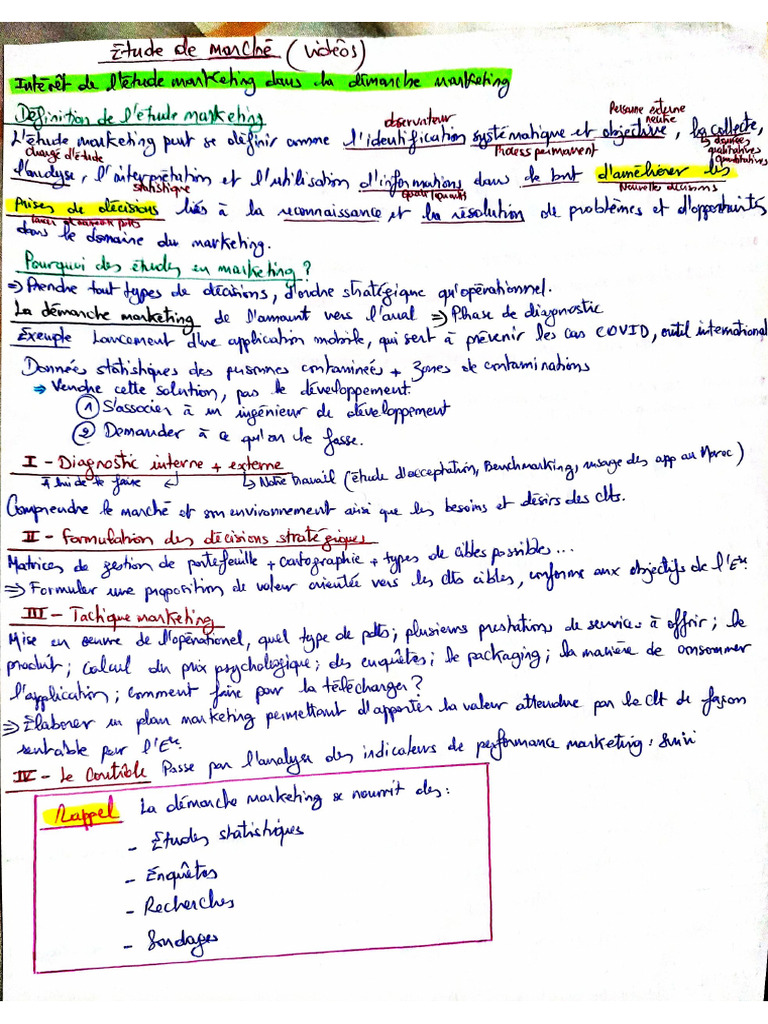 Etude de marché (vidéos)
Intérêt de l'étude marketing dans la démarche marketing
Définition de l'étude marketing
observateur
Personne externe
neutre
L'étude marketing peut se définir comme l'identification systématique et objective, la collecte,
chargé d'étude
Process permanent
↳ données
qualitatives
quantitatives
l'analyse, l'interprétation et l'utilisation d'informations dans le but d'améliorer les
statistique
Nouvelle décisions
prises de décisions liés à la reconnaissance et la résolution de problèmes et d'opportunités
dans le domaine du marketing.
Pourquoi des études en marketing ?
⇒ Prendre tout types de décisions, d'ordre stratégique qu'opérationnel.
La démarche marketing de l'amount vers l'aval ⇒ Phase de diagnostic
Exemple Lancement d'une application mobile, qui sert à prévenir les cas COVID, outil international
Données statistiques des personnes contaminées + zones de contaminations
⇒ Vendre cette solution, pas le développement.
① S'associer à un ingénieur de développement
② Demander à ce qu'on le fasse.
I - Diagnostic interne + externe
à lui de le faire ↳ Notre travail (étude d'acceptation, Benchmarking, usage des app au Maroc)
Comprendre le marché et son environnement ainsi que les besoins et désirs des clts.
II - Formulation des décisions stratégiques
Matrices de gestion de portefeuille + cartographie + types de cibles possibles...
⇒ Formuler une proposition de valeur orientée vers les clts cibles, conforme aux objectifs de l'Ese
III - Tactique marketing
Mise en oeuvre de l'opérationel, quel type de pdts ; plusieurs prestations de services à offrir ; le
produit ; calcul du prix psychologique ; des enquêtes ; le packaging ; la manière de consommer
l'application ; comment faire pour la télécharger ?
⇒ Élaborer un plan marketing permettant d'apporter la valeur attendue par le clt de façon
rentable pour l'Ese
IV - Le Contrôle Passe par l'analyse des indicateurs de performance marketing : suivi
Rappel La démarche marketing se nourrit des :
- Études statistiques
- Enquêtes
- Recherches
- Sondages